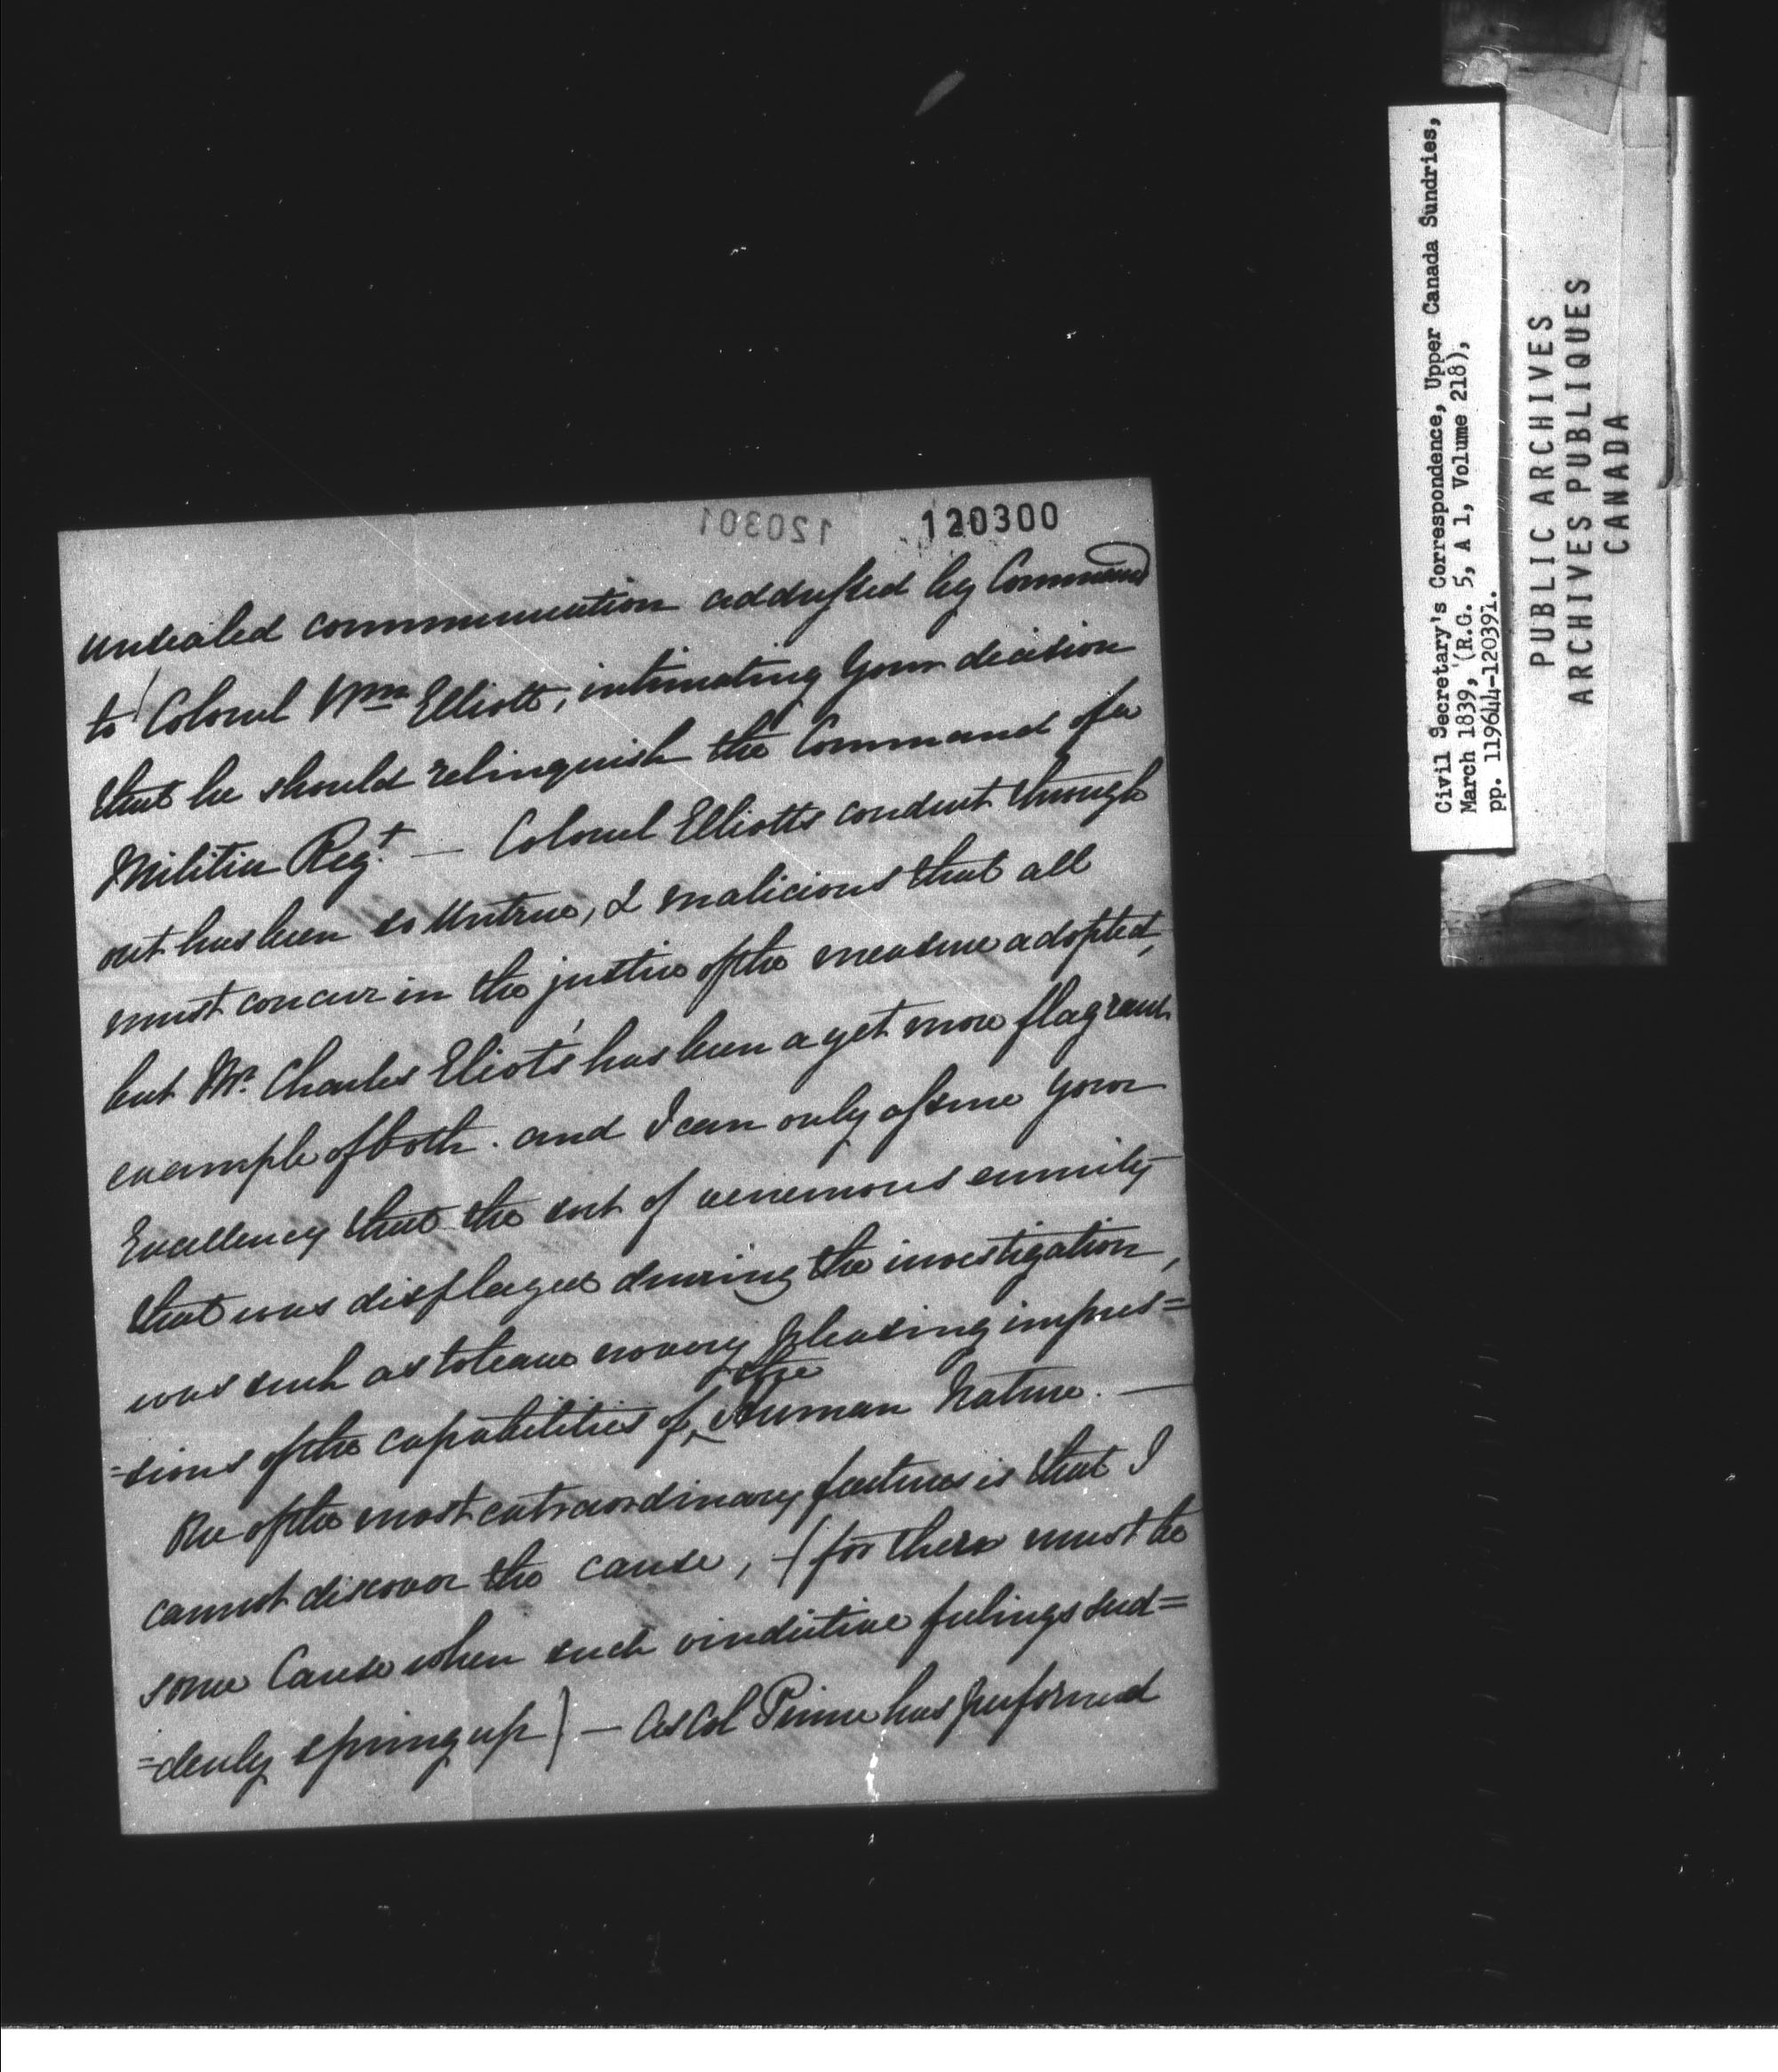 120300
120301
unsealed communication addressed by Command
to Colonel Wm Elliott, intimating Your decision
that he should relinquish the Command of a
Militia Regt. — Colonel Elliotts conduct through
out has been so Untrue, & malicious that all
must concur in the justice of the measure adopted,
but Mr. Charles Eliot's has been a yet more flagrant
example of both. and I can only assure Your
Excellency that the sort of venemous enmity
that was displayed during the investigation,
was such as to leave no very pleasing impres=
=sions of the capabilities of the Human Nature. —
One of the most extraordinary features is that I
cannot discover the cause, - (for there must be
some Cause when such vindictive feelings sud=
=denly spring up) — as Col Prince has performed
Civil Secretary's Correspondence, Upper Canada Sundries,
March 1839, (R.G. 5, A 1, Volume 218),
pp. 119644-120391.
PUBLIC ARCHIVES
ARCHIVES PUBLIQUES
CANADA